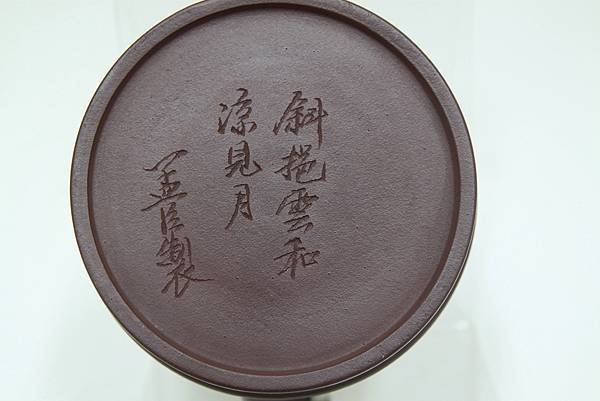 斜挹雲和
涼見月
孟臣製